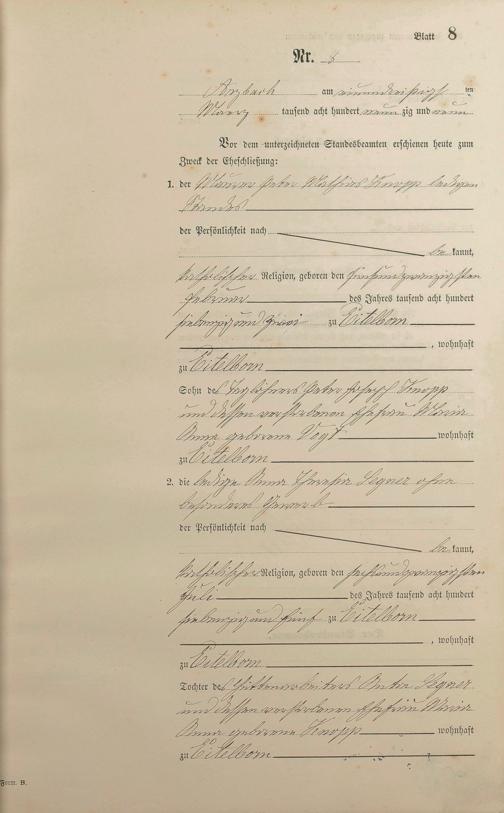 Blatt 8
Nr. 8
Arzbach am einunddreißigsten
Maerz tausend acht hundert neunzig und neun
Vor dem unterzeichneten Standesbeamten erschienen heute zum
Zweck der Eheschließung:
1. der Maurer Peter Mathias Knopp ledigen
Standes
der Persönlichkeit nach
bekannt,
katholischer Religion, geboren den fünfundzwanzigsten
Februar des Jahres tausend acht hundert
siebenzig und zwei zu Eitelborn
, wohnhaft
zu Eitelborn
Sohn des Taglöhners Peter Joseph Knopp
und dessen verstorbenen Ehefrau Maria
Anna geborene Vogt wohnhaft
zu Eitelborn
2. die ledige Anna Theresia Legner ohne
besonderes Gewerb
der Persönlichkeit nach
bekannt,
katholischer Religion, geboren den sechsundzwanzigsten
Juli des Jahres tausend acht hundert
siebenzig und fünf zu Eitelborn
, wohnhaft
zu Eitelborn
Tochter des Hüttenarbeiters Anton Legner
und dessen verstorbenen Ehefrau Maria
Anna geborene Knopp wohnhaft
zu Eitelborn
Form. B.